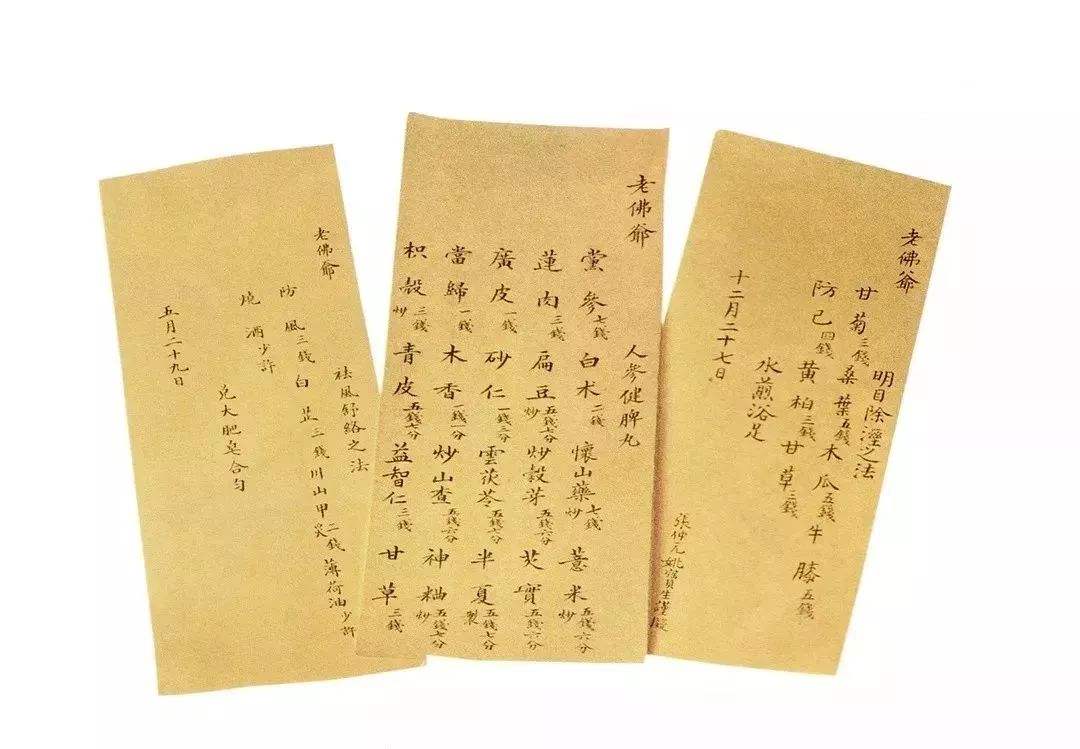 老佛爺
明目除溼之法
甘菊三錢桑葉五錢木瓜五錢牛膝五錢
防已四錢黃柏三錢甘草三錢
水煎浴足
十二月二十七日
張仲元姚寶生謹擬
老佛爺
人參健脾丸
黨參七錢白术二錢懷山藥炒七錢薏米炒五錢六分
蓮肉三錢扁豆炒五錢七分炒穀芽五錢六分芡實五錢六分
廣皮一錢砂仁一錢三分雲茯苓五錢六分半夏製五錢七分
當歸一錢木香一錢一分炒山查五錢六分神粬炒五錢七分
枳殼炒三錢青皮五錢七分益智仁三錢甘草三錢
老佛爺
祛風舒絡之法
防風三錢白芷三錢川山甲炙二錢薄荷油少許
燒酒少許
兌大肥皂合勻
五月二十九日